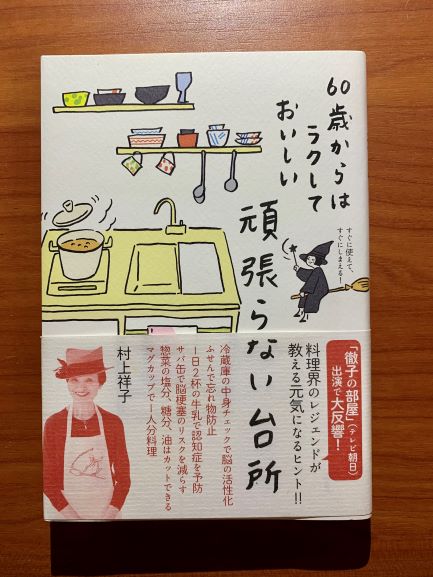 60歳からは
ラクして
おいしい
頑張らない台所
すぐに使えて、
すぐにしまえる!
「徹子の部屋」(テレビ朝日)
出演で大反響!
料理界のレジェンドが
教える元気になるヒント!!
冷蔵庫の中身チェックで脳の活性化
ふせんで忘れ物防止
1日2杯の牛乳で認知症を予防
サバ缶で脳梗塞のリスクを減らす
惣菜の塩分、糖分、油はカットできる
マグカップで一人分料理
村上祥子